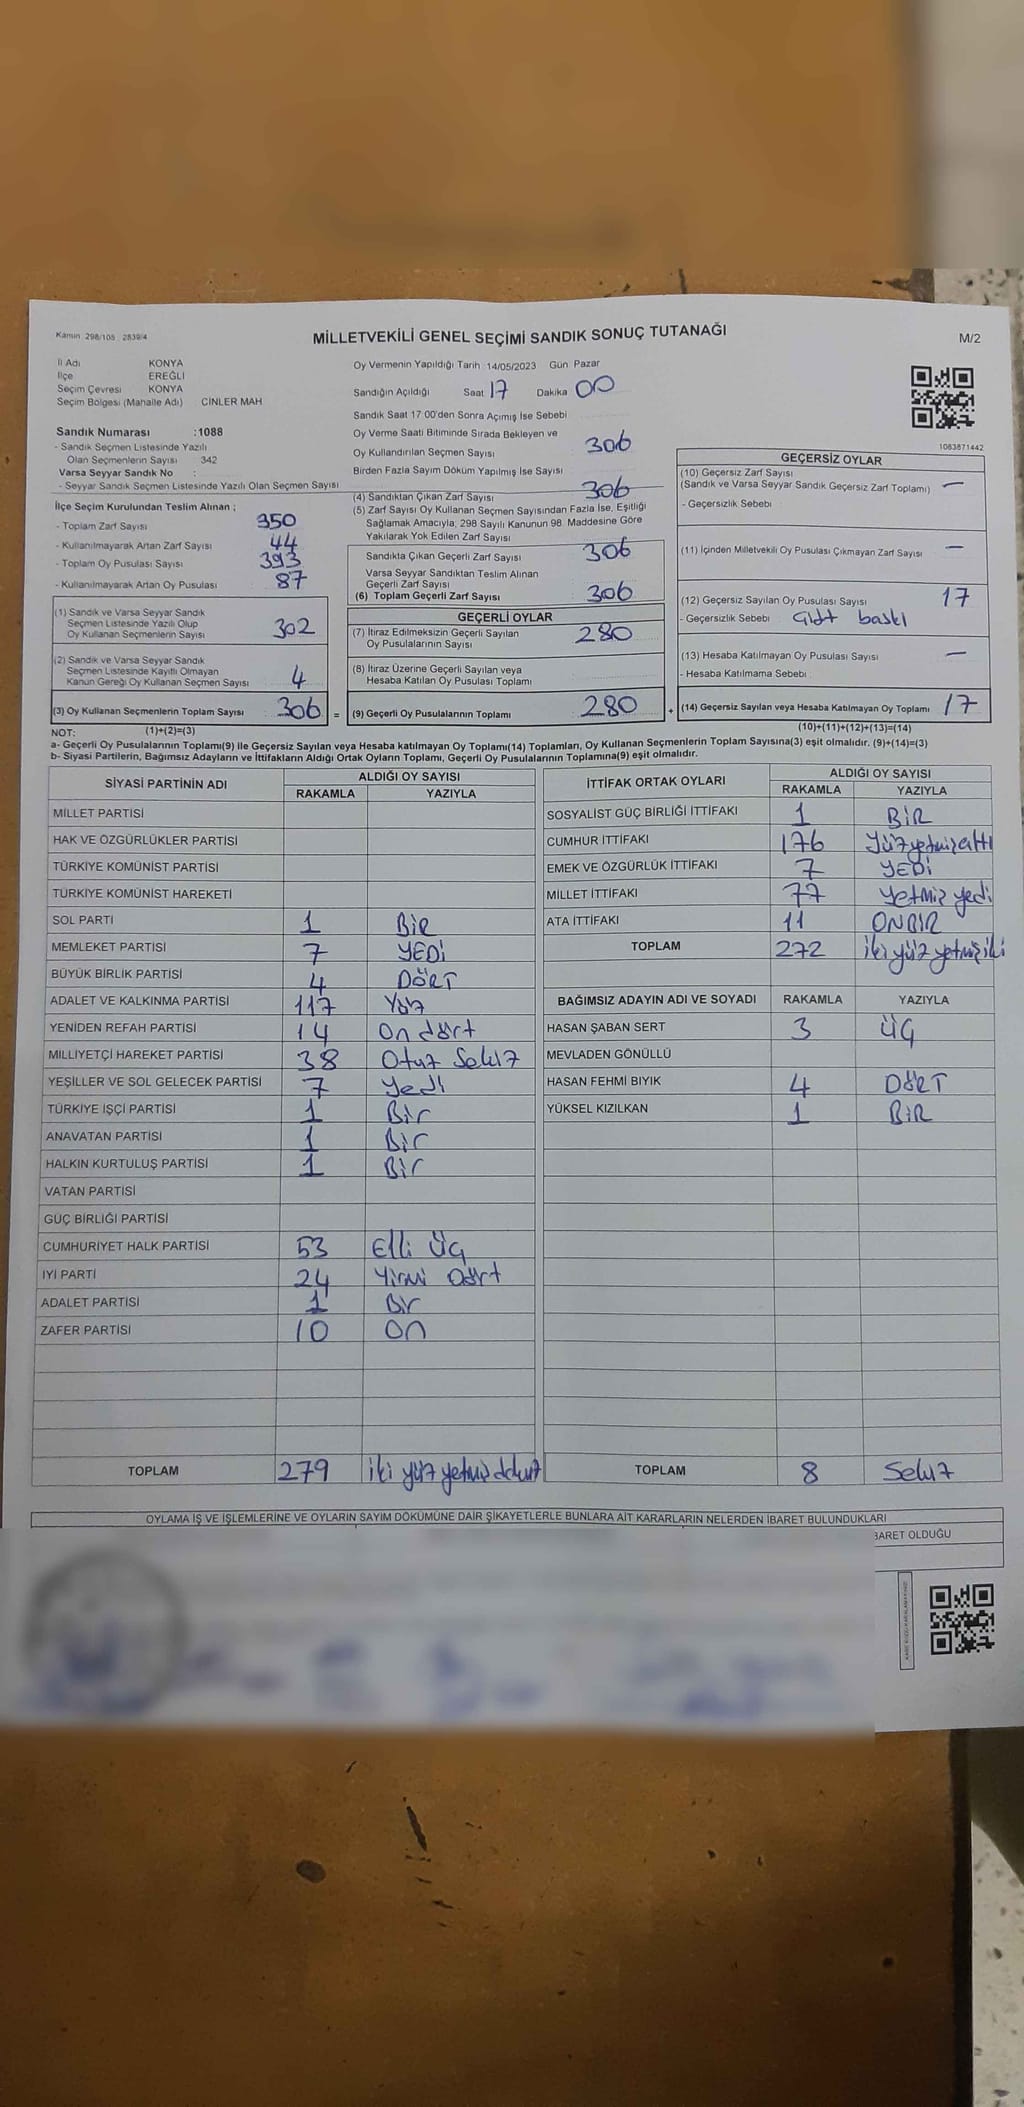 Kanun 298/105 2839/4
MİLLETVEKİLİ GENEL SEÇİMİ SANDIK SONUÇ TUTANAĞI
M/2
İl Adı KONYA
İlçe EREĞLİ
Seçim Çevresi KONYA
Seçim Bölgesi (Mahalle Adı) CİNLER MAH
Sandık Numarası :1088
- Sandık Seçmen Listesinde Yazılı
Olan Seçmenlerin Sayısı 342
Varsa Seyyar Sandık No :
- Seyyar Sandık Seçmen Listesinde Yazılı Olan Seçmen Sayısı
İlçe Seçim Kurulundan Teslim Alınan ;
- Toplam Zarf Sayısı 350
- Kullanılmayarak Artan Zarf Sayısı 44
- Toplam Oy Pusulası Sayısı 393
- Kullanılmayarak Artan Oy Pusulası 87
(1) Sandık ve Varsa Seyyar Sandık
Seçmen Listesinde Yazılı Olup
Oy Kullanan Seçmenlerin Sayısı 302
(2) Sandık ve Varsa Seyyar Sandık
Seçmen Listesinde Kayıtlı Olmayan
Kanun Gereği Oy Kullanan Seçmen Sayısı 4
(3) Oy Kullanan Seçmenlerin Toplam Sayısı 306 =
Oy Vermenin Yapıldığı Tarih 14/05/2023 Gün Pazar
Sandığın Açıldığı Saat 17 Dakika 00
Sandık Saat 17 00'den Sonra Açımış İse Sebebi
Oy Verme Saati Bitiminde Sırada Bekleyen ve
Oy Kullandırılan Seçmen Sayısı 306
Birden Fazla Sayım Döküm Yapılmış İse Sayısı
(4) Sandıktan Çıkan Zarf Sayısı 306
(5) Zarf Sayısı Oy Kullanan Seçmen Sayısından Fazla İse, Eşitliği
Sağlamak Amacıyla, 298 Sayılı Kanunun 98. Maddesine Göre
Yakılarak Yok Edilen Zarf Sayısı
Sandıkta Çıkan Geçerli Zarf Sayısı 306
Varsa Seyyar Sandıktan Teslim Alınan
Geçerli Zarf Sayısı
(6) Toplam Geçerli Zarf Sayısı 306
GEÇERLİ OYLAR
(7) İtiraz Edilmeksizin Geçerli Sayılan
Oy Pusulalarının Sayısı 280
(8) İtiraz Üzerine Geçerli Sayılan veya
Hesaba Katılan Oy Pusulası Toplamı
(9) Geçerli Oy Pusulalarının Toplamı 280 +
1083871442
GEÇERSİZ OYLAR
(10) Geçersiz Zarf Sayısı
(Sandık ve Varsa Seyyar Sandık Geçersiz Zarf Toplamı) —
- Geçersizlik Sebebi
(11) İçinden Milletvekili Oy Pusulası Çıkmayan Zarf Sayısı —
(12) Geçersiz Sayılan Oy Pusulası Sayısı 17
- Geçersizlik Sebebi Çift baskı
(13) Hesaba Katılmayan Oy Pusulası Sayısı —
- Hesaba Katılmama Sebebi
(14) Geçersiz Sayılan veya Hesaba Katılmayan Oy Toplamı 17
NOT: (1)+(2)=(3) (10)+(11)+(12)+(13)=(14)
a- Geçerli Oy Pusulalarının Toplamı(9) ile Geçersiz Sayılan veya Hesaba katılmayan Oy Toplamı(14) Toplamları, Oy Kullanan Seçmenlerin Toplam Sayısına(3) eşit olmalıdır. (9)+(14)=(3)
b- Siyasi Partilerin, Bağımsız Adayların ve İttifakların Aldığı Ortak Oyların Toplamı, Geçerli Oy Pusulalarının Toplamına(9) eşit olmalıdır.
SİYASİ PARTİNİN ADI ALDIĞI OY SAYISI
RAKAMLA YAZIYLA
MİLLET PARTİSİ
HAK VE ÖZGÜRLÜKLER PARTİSİ
TÜRKİYE KOMÜNİST PARTİSİ
TÜRKİYE KOMÜNİST HAREKETİ
SOL PARTİ 1 BİR
MEMLEKET PARTİSİ 7 YEDİ
BÜYÜK BİRLİK PARTİSİ 4 DÖRT
ADALET VE KALKINMA PARTİSİ 117 Yüz
YENİDEN REFAH PARTİSİ 14 On dört
MİLLİYETÇİ HAREKET PARTİSİ 38 Otuz Sekiz
YEŞİLLER VE SOL GELECEK PARTİSİ 7 Yedi
TÜRKİYE İŞÇİ PARTİSİ 1 Bir
ANAVATAN PARTİSİ 1 Bir
HALKIN KURTULUŞ PARTİSİ 1 Bir
VATAN PARTİSİ
GÜÇ BİRLİĞİ PARTİSİ
CUMHURİYET HALK PARTİSİ 53 Elli Üç
İYİ PARTİ 24 Yirmi Dört
ADALET PARTİSİ 1 Bir
ZAFER PARTİSİ 10 On
TOPLAM 279 iki yüz yetmiş dokuz
İTTİFAK ORTAK OYLARI ALDIĞI OY SAYISI
RAKAMLA YAZIYLA
SOSYALİST GÜÇ BİRLİĞİ İTTİFAKI 1 BİR
CUMHUR İTTİFAKI 176 Yüzyetmişaltı
EMEK VE ÖZGÜRLÜK İTTİFAKI 7 YEDİ
MİLLET İTTİFAKI 77 Yetmiş yedi
ATA İTTİFAKI 11 ONBİR
TOPLAM 272 iki yüz yetmiş iki
BAĞIMSIZ ADAYIN ADI VE SOYADI RAKAMLA YAZIYLA
HASAN ŞABAN SERT 3 ÜÇ
MEVLADEN GÖNÜLLÜ
HASAN FEHMİ BIYIK 4 DÖRT
YÜKSEL KIZILKAN 1 BİR
TOPLAM 8 Sekiz
OYLAMA İŞ VE İŞLEMLERİNE VE OYLARIN SAYIM DÖKÜMÜNE DAİR ŞİKAYETLERLE BUNLARA AİT KARARLARIN NELERDEN İBARET BULUNDUKLARI
BARET OLDUĞU